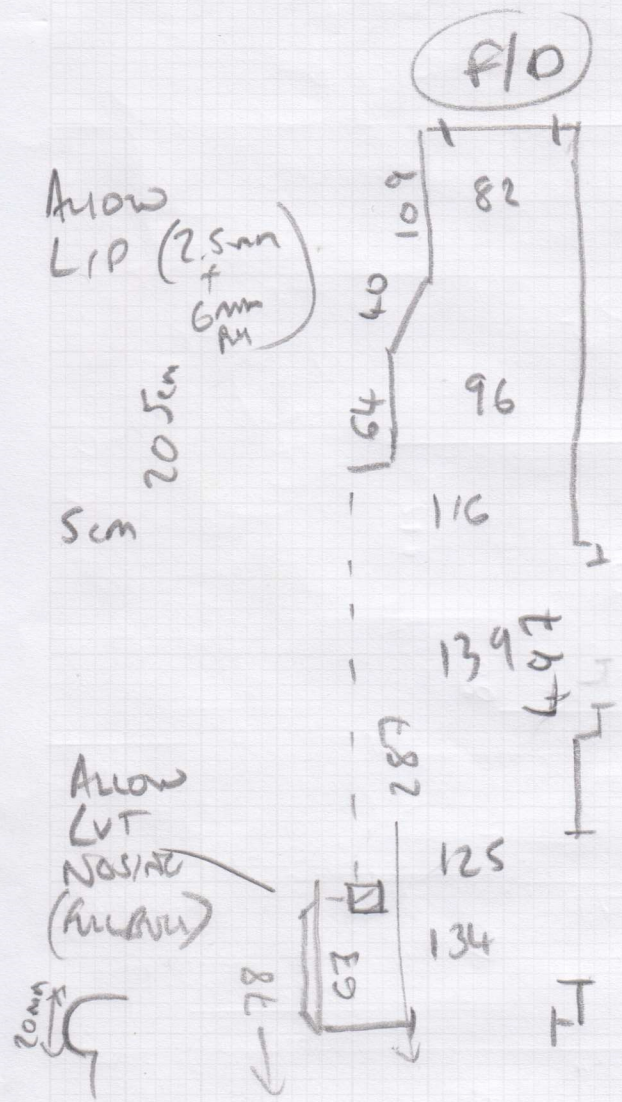 F/D
ALLOW
LIP (2.5mm
+
6mm
109
82
40
64
96
205cm
5cm
116
139
497
287
ALLOW
LVT
NOSING
125
134
63
78
20mm